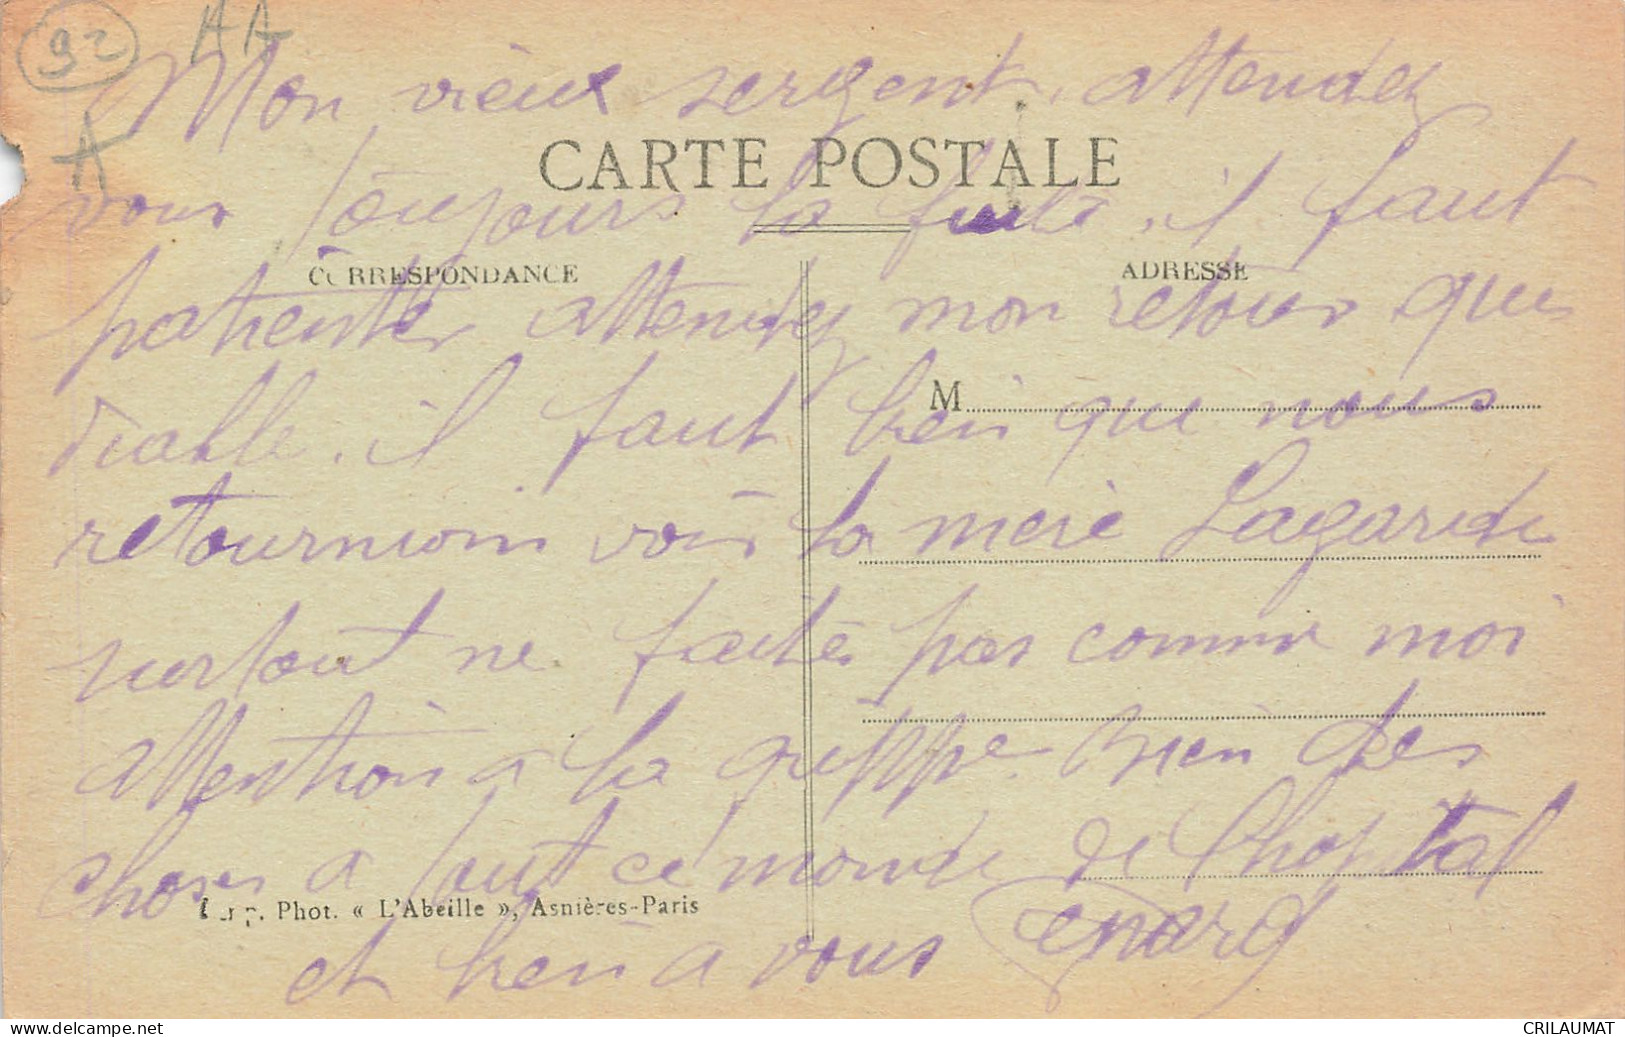 92 AA
A
Mon vieux sergent, attendez
CARTE POSTALE
vous toujours la fuite, il faut
CORRESPONDANCE
ADRESSE
patienter attendez mon retour que
M
diable. il faut bien que nous
retournion voir la mère Lagarde
surtout ne faites pas comme moi
attention a la grippe. Bien des
choses a tout ce monde de l'hopital
Imp. Phot. « L'Abeille », Asnières-Paris
et bien a vous
www.delcampe.net
CRILAUMAT